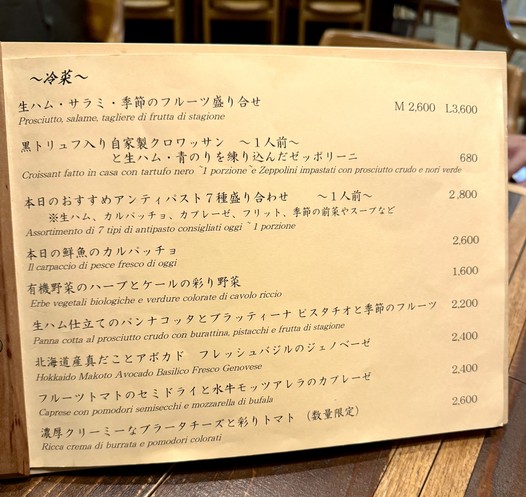 ～冷菜～
生ハム・サラミ・季節のフルーツ盛り合せ M 2,600 L3,600
Prosciutto, salame, tagliere di frutta di stagione
黒トリュフ入り自家製クロワッサン ～1人前～
と生ハム・青のりを練り込んだゼッポリーニ 680
Croissant fatto in casa con tartufo nero ~1 porzione~e Zeppolini impastati con prosciutto crudo e nori verde
本日のおすすめアンティパスト7種盛り合わせ ～1人前～ 2,800
※生ハム、カルパッチョ、カプレーゼ、フリット、季節の前菜やスープなど
Assortimento di 7 tipi di antipasto consigliati oggi ~1 porzione
本日の鮮魚のカルパッチョ 2,600
Il carpaccio di pesce fresco di oggi
有機野菜のハーブとケールの彩り野菜 1,600
Erbe vegetali biologiche e verdure colorate di cavolo riccio
生ハム仕立てのパンナコッタとブラッティーナ ピスタチオと季節のフルーツ 2,200
Panna cotta al prosciutto crudo con burattina, pistacchi e frutta di stagione
北海道産真だことアボカド フレッシュバジルのジェノベーゼ 2,400
Hokkaido Makoto Avocado Basilico Fresco Genovese
フルーツトマトのセミドライと水牛モッツアレラのカプレーゼ 2,400
Caprese con pomodori semisecchi e mozzarella di bufala
濃厚クリーミーなブラータチーズと彩りトマト (数量限定) 2,600
Ricca crema di burrata e pomodori colorati